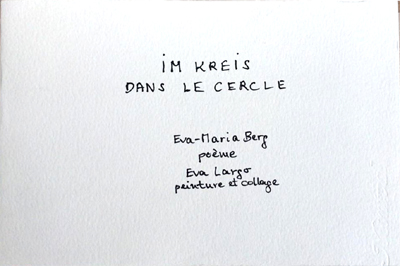 iM KREiS
DANS LE CERCLE
Eva-Maria Berg
poème
Eva Largo
peinture et collage